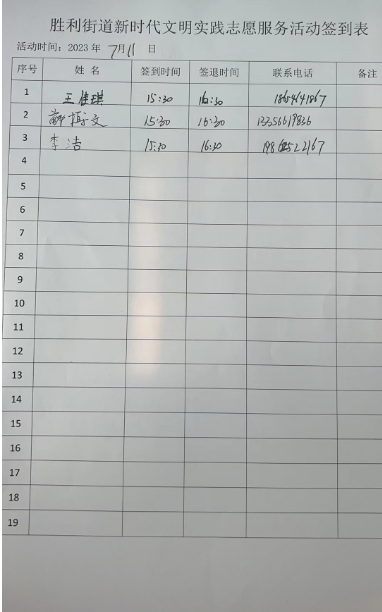 胜利街道新时代文明实践志愿服务活动签到表
活动时间：2023年 7月11 日
序号 姓名 签到时间 签退时间 联系电话 备注
1 王 15:30 16:30
2 文 15:30 16:30
3 李洁 15:30 16:30
4
5
6
7
8
9
10
11
12
13
14
15
16
17
18
19